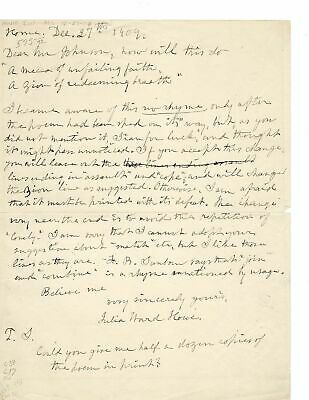 Home, Dec. 27th 1909.
Dear Mr Johnson, how will this do
"A mecca of unfailing faith,
A Zion of redeeming breath"
I became aware of this no rhyme, only after
the poem had been sped on its way, but as you
did not mention it, I ran for luck, and thought
it might pass unnoticed. If you accept this change,
you will leave out the lines ending assault
lines ending in "assault" and "cope", and will change
the Zion line as suggested. Otherwise, I am afraid
that it must be printed with its defect. The change
very near the end is to avoid the repetition of
"lonely". I am sorry that I cannot adopt your
suggestion about "match" etc, but I like those
lines as they are. F. B. Sanborn says that "join
and "combine" is a rhyme sanctioned by usage.
Believe me
very sincerely yours,
Julia Ward Howe.
P. S.
Could you give me half a dozen copies of
the poem in print?